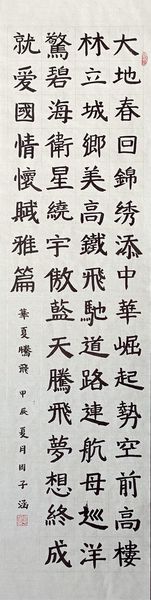 大地春回錦綉添中華崛起勢空前高樓
林立城鄉美高鐵飛馳道路連航母巡洋
驚碧海衛星繞宇傲藍天騰飛夢想終成
就愛國情懷賦雅篇
華夏騰飛 甲辰夏月周子涵